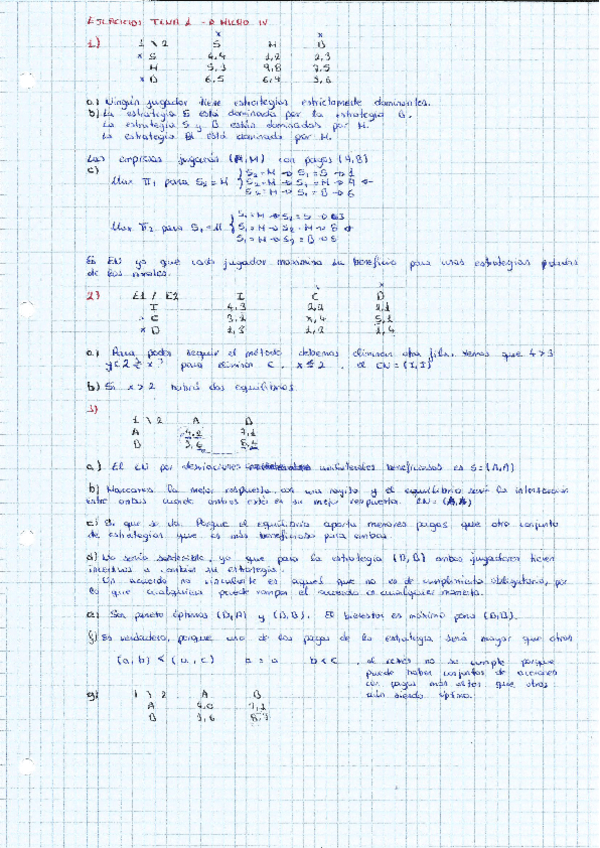 EJERCICIOS TEMA 1 - MICRO IV
x x
1) 1 \ 2 S M B
x S 6,4 1,2 2,3
M 5,3 9,8 7,5
x B 6,5 6,4 3,6
a) Ningún jugador tiene estrategias estrictamente dominantes.
b) La estrategia S está dominada por la estrategia B.
La estrategia S y B están dominadas por M.
La estrategia B está dominada por M.
Las empresas jugarán (M,M) con pagos (9,8)
c)
Max π1 para S2 = M
S2 = M → S1 = S → 1
S2 = M → S1 = M → 9
S2 = M → S1 = B → 6
Max π2 para S1 = M
S1 = M → S2 = M → 8
S1 = M → S2 = B → 5
Es EN ya que cada jugador maximiza su beneficio para unas estrategias
de los rivales.
2) E1 / E2 I C D
I 4,3 2,2 2,1
C 3,2 x,4 5,1
x D 1,3 1,2 1,4
a) Para poder seguir el método debemos eliminar otra fila. Vemos que 4 > 3
y 2 ≥ x para eliminar C. x ≤ 2. el EN = (I,I)
b) Si x > 2 habrá dos equilibrios.
3)
1 \ 2 A B
A 4,2 7,1
B 3,6
a) El EN por desviaciones unilaterales beneficiosas es S = (A,A)
b) Marcamos la mejor respuesta con una rayita y el equilibrio será la intersección
entre ambas cuando ambos estén en su mejor respuesta. EN = (A,A)
c) Sí que se da. Porque el equilibrio aporta menores pagos que otro conjunto
de estrategias que es más beneficioso para ambos.
d) No sería sostenible, ya que para la estrategia (B,B) ambos jugadores tienen
incentivos a cambiar su estrategia.
Un acuerdo no vinculante es aquel que no es de cumplimiento obligatorio, por
lo que cualquiera puede romper el acuerdo en cualquier momento.
e) Son pareto óptimos (B,A) y (B,B). El bienestar es máximo para (B,B).
f) Es verdadero, porque uno de los pagos de la estrategia será mayor que otros
(a,b) < (a,c) a = a b < c , al revés no se cumple porque
puede haber conjuntos de acciones
con pagos más altos que otros
aún siendo óptimo.
g) 1 \ 2 A B
A 4,0 7,1
B 3,6